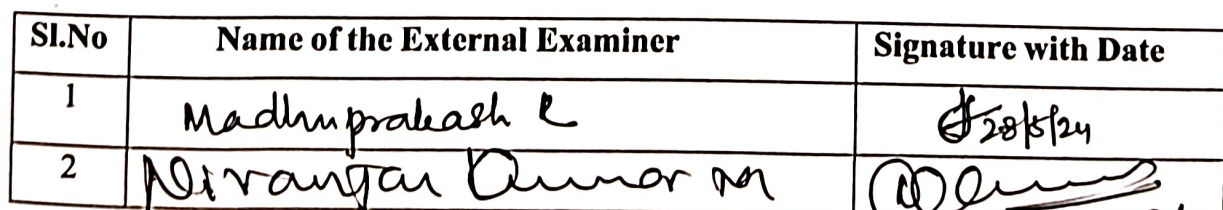 Sl.No Name of the External Examiner Signature with Date
1 Madhuprakash R 28/5/24
2 Niranjan Kumar M